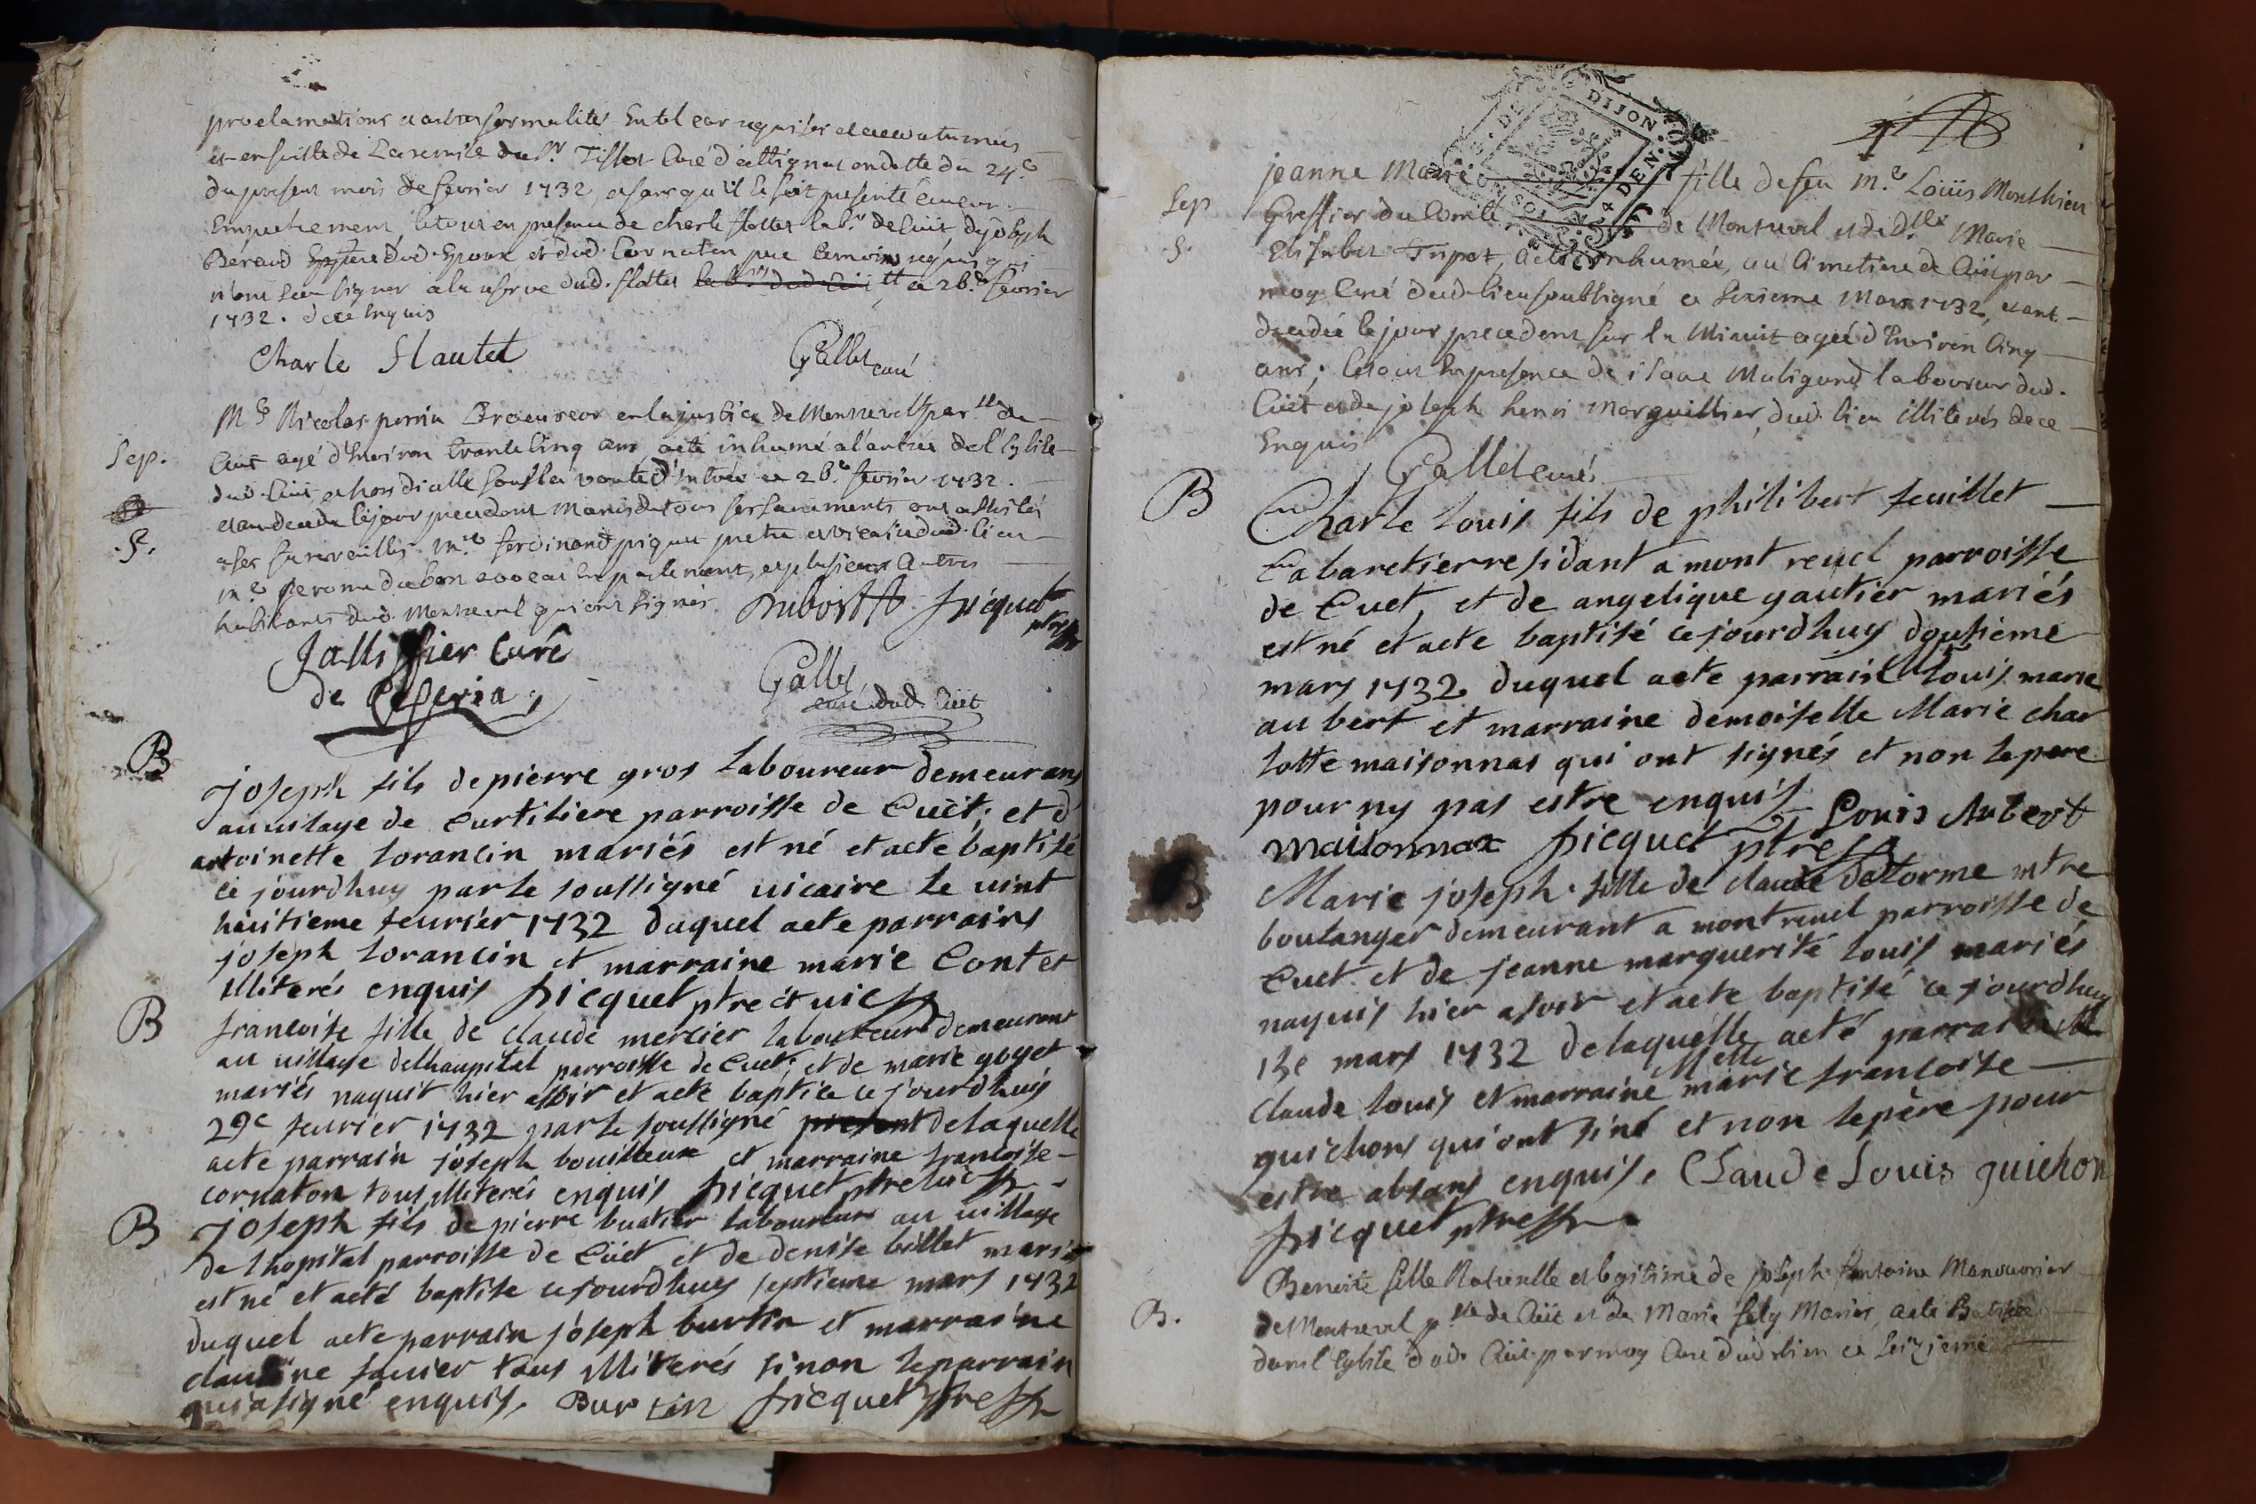 proclamations et autres formalités en tel cas requises et accoutumées
et ensuitte de la remise du Sr. Tillot Curé d'attignat en datte du 24e
du present mois de fevrier 1732, et sans qu'il se soit presenté aucun
Empechement, le tout en presence de charle flottet lab.r de Cuit, de joseph
Béraud dud. Epoux et dud. Cornaton par temoins requis qui
n'ont sceu signer a la reserve dud. flottet ce 26.e fevrier
1732. de ce Enquis
Charle flautet Gallet curé
Sep.
Me Nicolas perrin Procureur en la justice de Montrevel parsse de
Cuit agé d'Environ trente cinq ans a eté inhumé a l'entrée de l'Eglise
dud. Cuit et hors d'icelle sous la voute d'Entrée ce 26.e fevrier 1732.
etant decedé le jour precedent Munis de tous ses sacrements ont assistés
.S.
a ses funerailles m.re ferdinand piquet pretre et vicaire dud. lieu
m.e peronne dubost avocat en parlement, et plusieurs autres
habitants dud. Montrevel qui ont signés. Dubost fricquet
ptre
Jallifier Curé
de Peseria
Gallet
curé dud. Cüet
B
joseph fils de pierre gros laboureur demeurans
au uilage de Curtiliere parroisse de Cuët; et d
antoinette lorancin mariés est né et a ete baptisé
ce jourdhuy par le soussigné uicaire le uint
huitieme feurier 1732 duquel a ete parrains
joseph lorancin et marraine marie Contet
illiterés enquis fricquet ptre et uic
B
francoise fille de claude mercier laboureur demeurant
au uillage delhaupital parroisse de Cuet; et de marie goyet
mariés naquit hier assoir et a ete baptice ce jourdhuy
29e feurier 1732 par le soussigné present de laquelle
a ete parrain joseph bouilleux et marraine francoise
cornaton tous illiterés enquis fricquet ptre uic
B
joseph fils de pierre buatier laboureur au uillage
de lhopital parroisse de Cüet et de denise billet mariés
est né et a eté baptise ce jourdhuy septieme mars 1732
duquel a ete parrain joseph burtin et marraine
claudine fauier tous illiterés sinon le parrain
qui a signé enquis, Burtin fricquet ptre
DE DIJON
DEN
jeanne Marie fille de feu m.e Loüis Monthieu
Sep
Greffier du Comté de Montrevel et de d.lle Marie
.S.
Elisabet Tripoz, a eté inhumée, au Cimetiere de Cüit par
moy Curé dud. lieu soussigné ce Sixieme Mars 1732, etant
decedée le jour precedent sur la Minuit agée d'Environ Cinq
ans; le tout en presence de isaac Maligand laboureur dud.
Cüit et de joseph henri Marguillier dud. lieu illiterés de ce
Enquis
Gallet curé
B
Charle louis fils de philibert feuillet
Cabaretier residant a montreuel parroisse
de Cuet, et de angelique gautier mariés
est né et a ete baptisé ce jourdhuy douhieme
mars 1732 duquel a ete parrain louis marie
aubert et marraine demoiselle Marie char
lotte maisonnas qui ont signés et non le pere
pour ny pas estre enquis Louis Aubert
maisonnax fricquet ptre
Marie joseph fille de claude delorme mtre
boulanger demeurant a montreuel parroisse de
Cuet et de jeanne marguerité louis mariés
naquis hier assoir et a ete baptisé ce jourdhuy
13e mars 1732 de laquelle a eté parrain
claude louis et marraine Melle marie francoise
guichons qui ont siné et non le père pour
estre absans enquis. Claude Louis guichon
fricquet ptre
B.
Benoite fille Naturelle et legitime de joseph fontaine Manouvrier
de Montrevel p.sse de Cüit et de Marie fely Mariés, a eté Batisée
dans l'Eglise dud. Cüit par moy Curé dud. lieu ce Seizieme